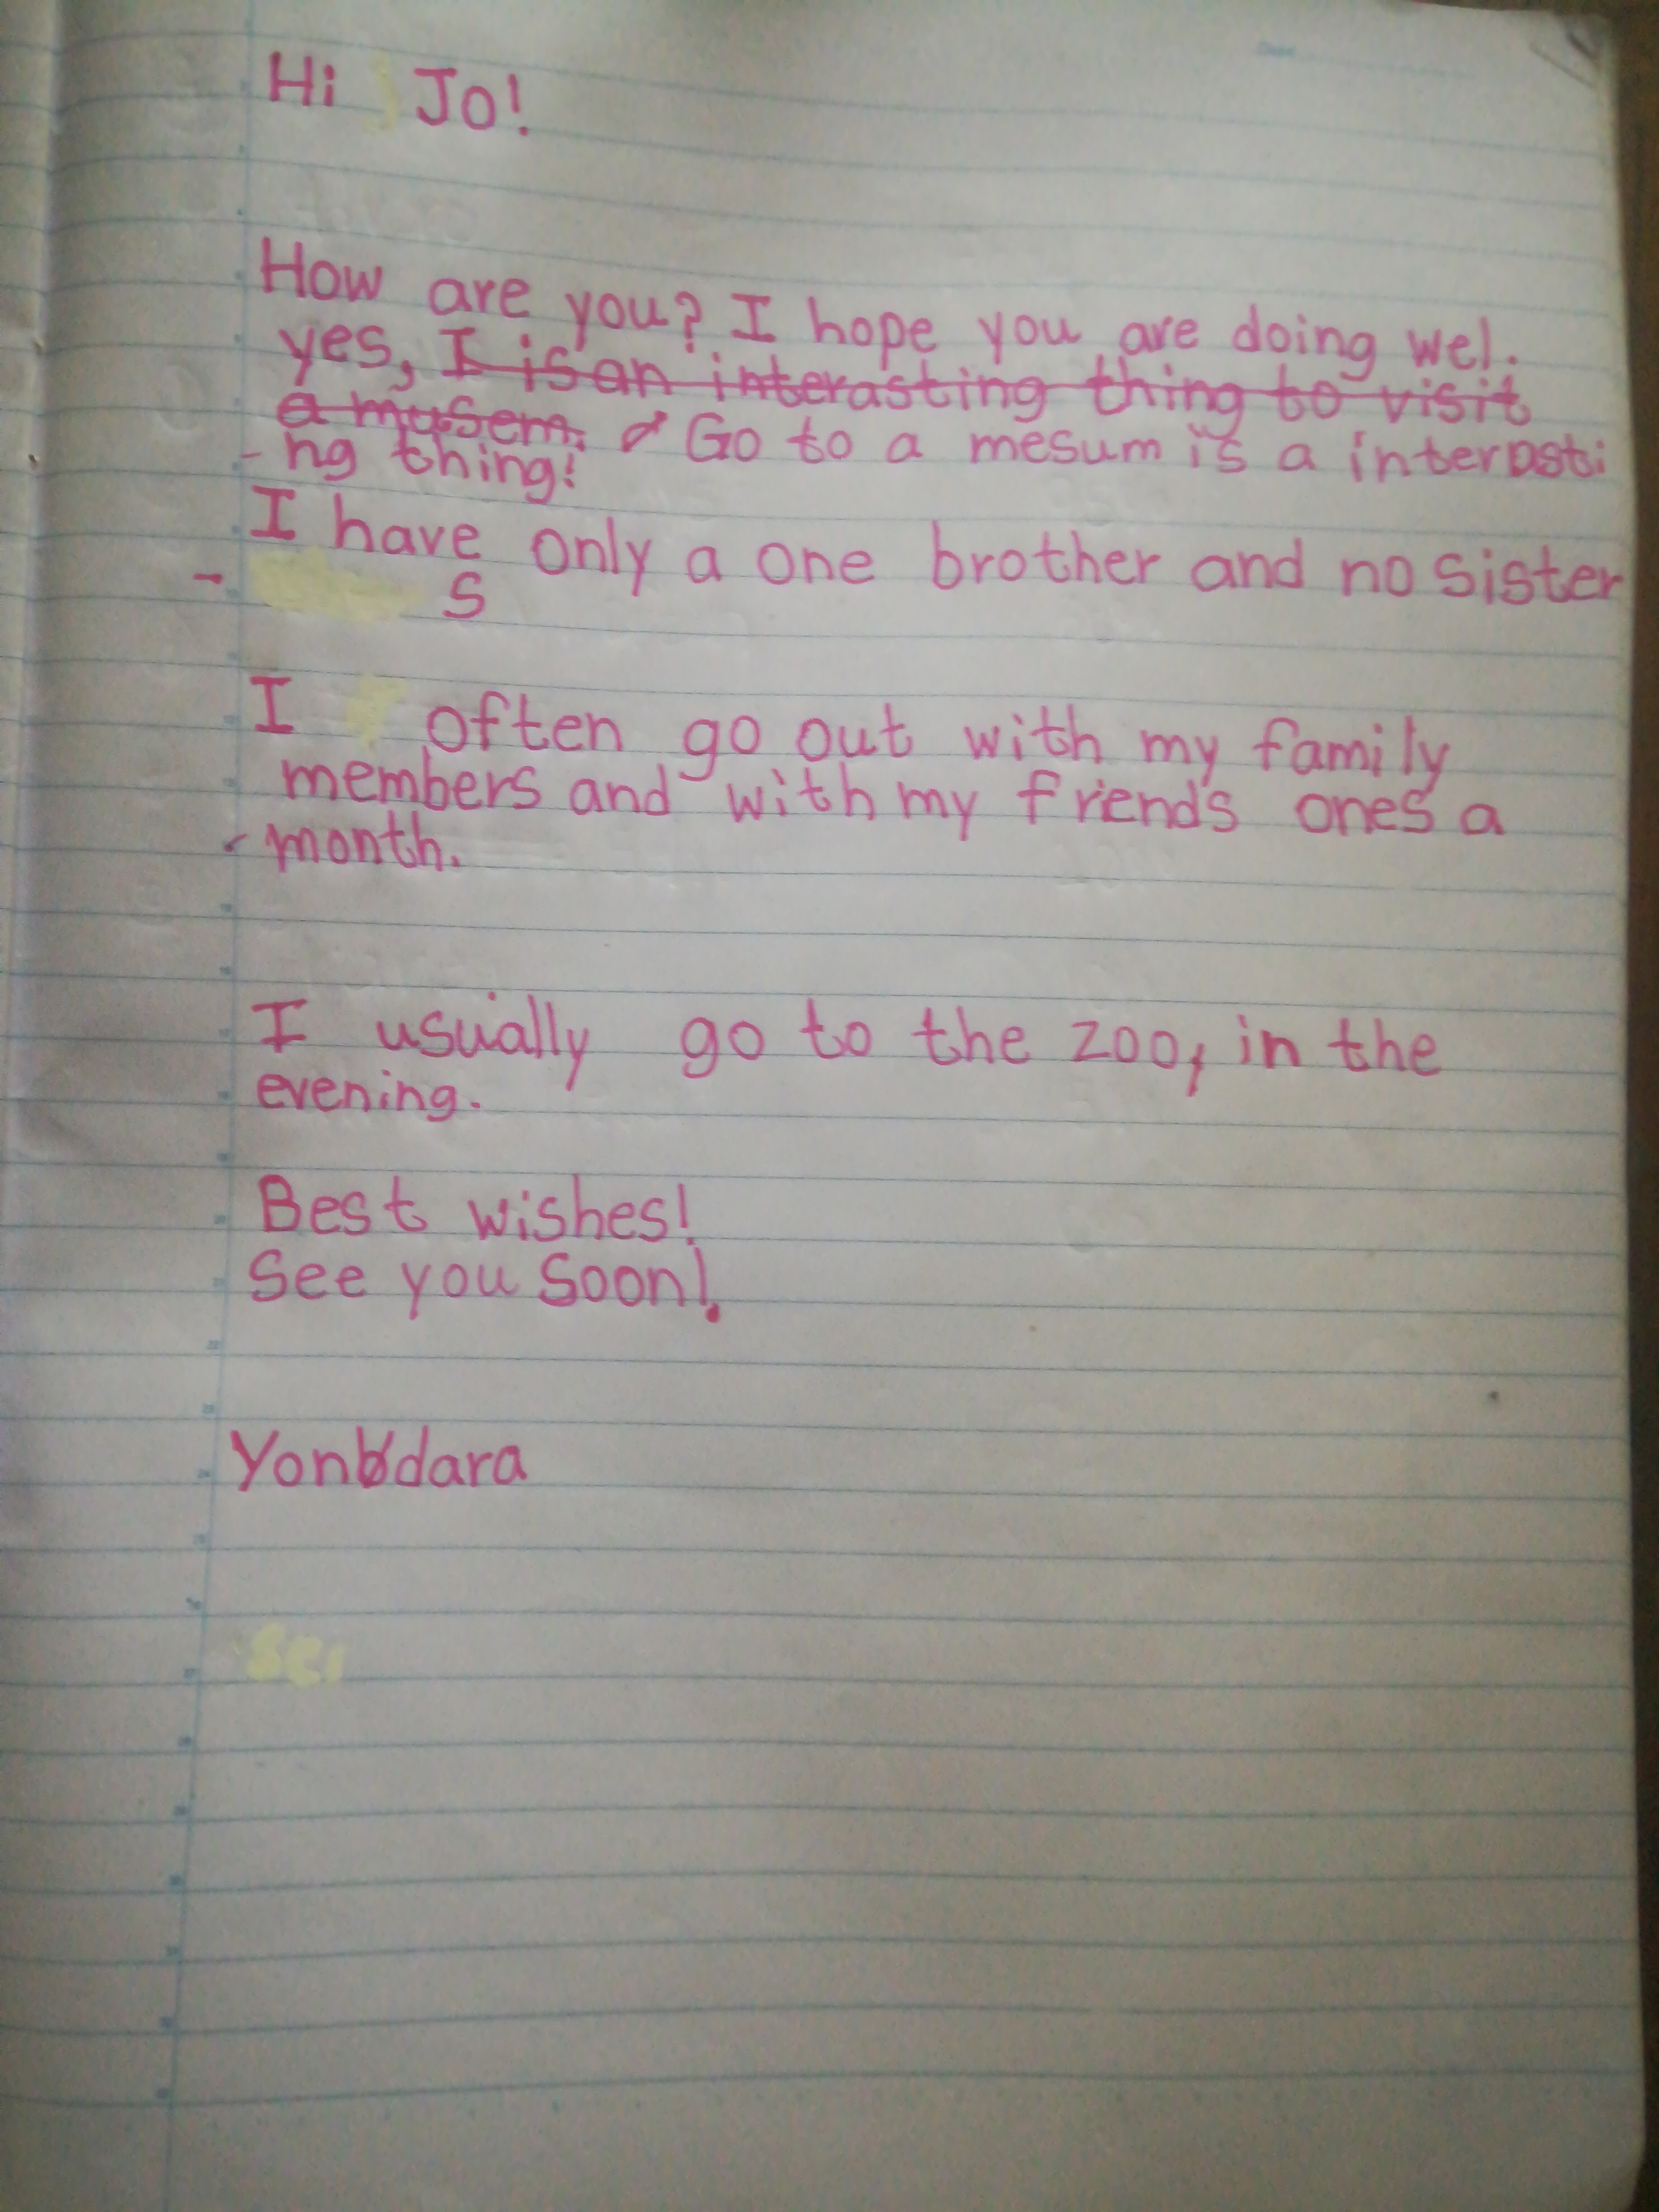 Hi Jo!
How are you? I hope you are doing wel.
yes, I is an interasting thing to visit
a musem. Go to a mesum is a interasti
-ng thing!
I have only a one brother and no sister
- s
I often go out with my family
members and with my friends ones a
- month.
I usually go to the zoo, in the
evening.
Best wishes!
See you soon!